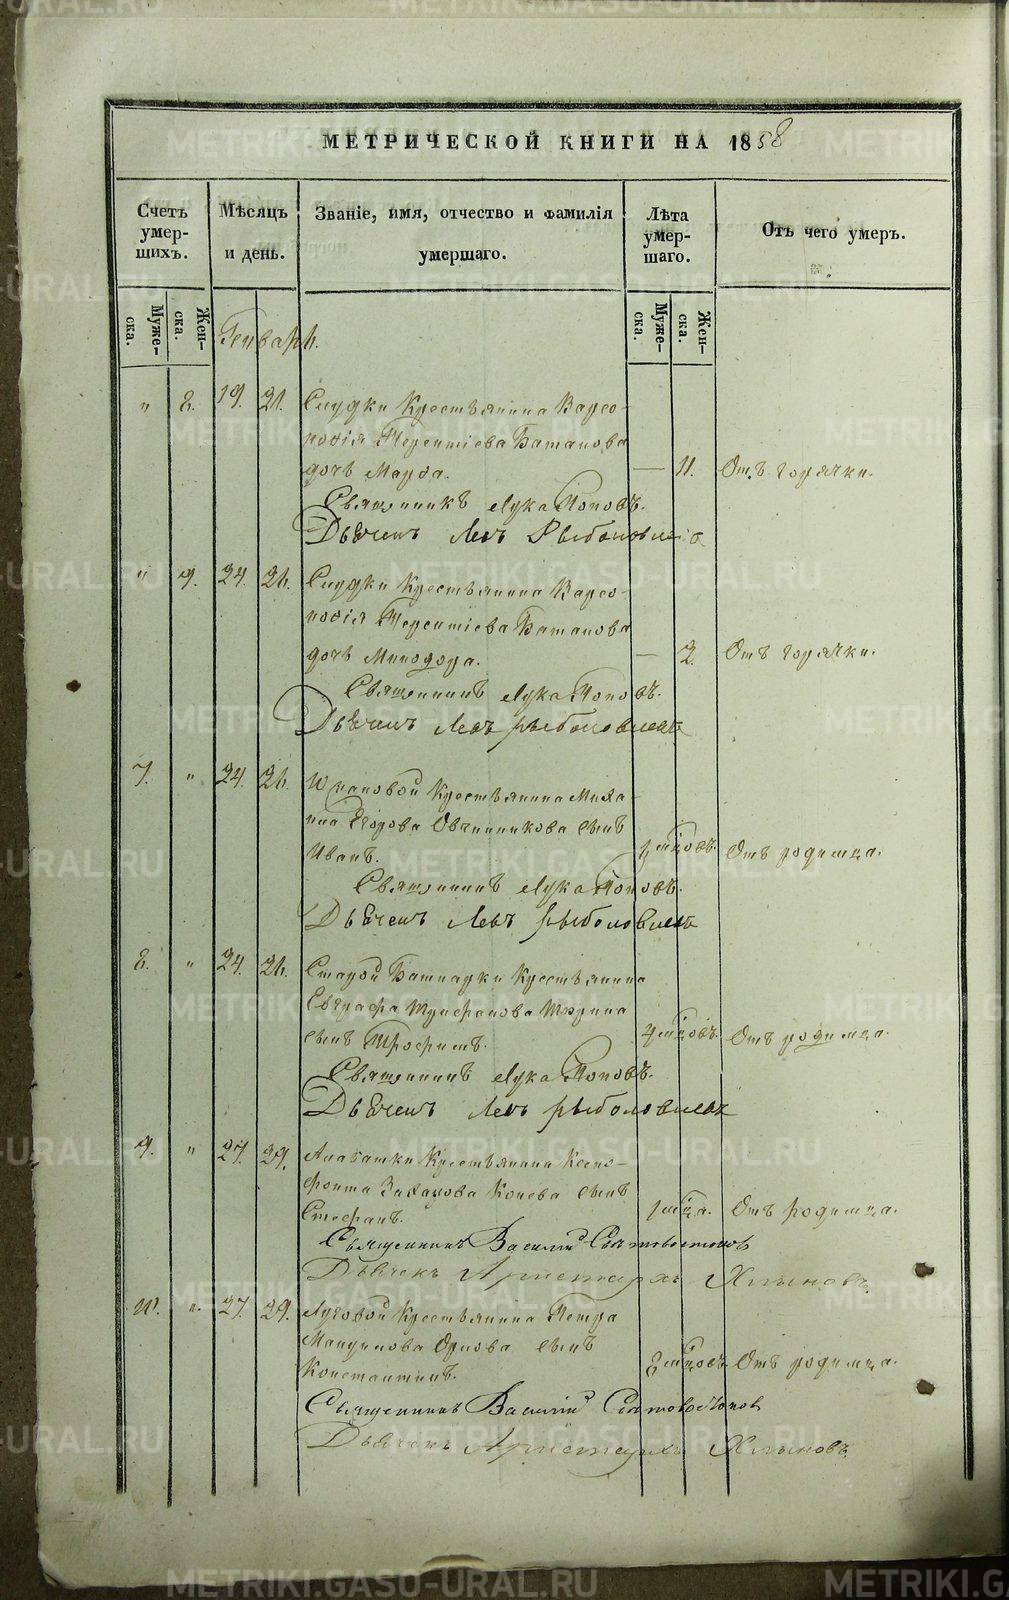 МЕТРИЧЕСКОЙ КНИГИ НА 1858
Счетъ умерших. Мѣсяцъ и день. Званіе, имя, отчество и фамилія умершаго. Лѣта умершаго. Отъ чего умеръ.
Мужеска. Женска. Мужеска. Женска.
Генварь.
" 8. 19. 21. Слудки Крестьянина Варсо-
нофія Терентіева Баталова
дочь Марфа. — 11. Отъ горячки.
Священникъ Лука Поповъ.
Дьячекъ Левъ
" 9. 24. 26. Слудки Крестьянина Варсо-
нофія Терентіева Баталова
дочь Минодора. — 2. Отъ горячки.
Священникъ Лука Поповъ.
Дьячекъ Левъ
7. " 24. 26. Крестьянина Миха-
ила Егорова Овчинникова сынъ
Иванъ. мцовъ. Отъ родимца.
Священникъ Лука Поповъ.
Дьячекъ Левъ
8. " 24. 26. Старой Крестьянина
Евграфа Тюрина
сынъ Трофимъ. 4 мцовъ. Отъ родимца.
Священникъ Лука Поповъ.
Дьячекъ Левъ
9. " 27. 29. Крестьянина Ксено-
фонта Захарова Конева сынъ
Стефанъ. 1 мца. Отъ родимца.
Священникъ Василій
Дьячекъ Аристархъ Хлыновъ.
10. " 27. 29. Луговой Крестьянина Петра
Орлова сынъ
Константинъ. 8 мцовъ. Отъ родимца.
Священникъ Василій
Дьячекъ Аристархъ Хлыновъ.
METRIKI.GASO-URAL.RU